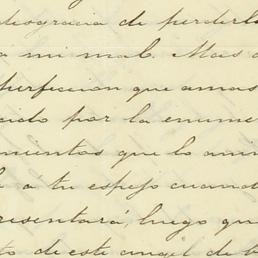 desgracia de perderla
a mi mal. Mas a
perfeccion que amas
cido por la enume
mientos que lo ani
á tu espejo cuand
resentará, luego qu
to de este angel de t